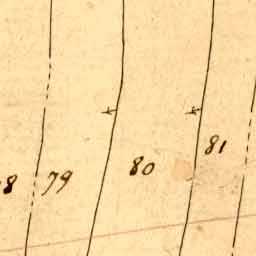 8 79 80 81